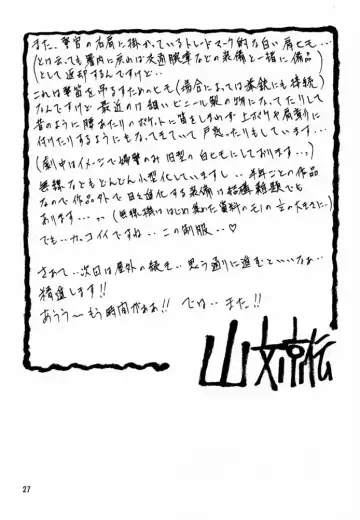 また、警官の右肩に掛かっているトレードマーク的な白い肩ヒモ…
(とは云っても署内に戻れば交通腕章などの装備と一緒に備品
として返却するんですけど…
これは警笛を吊るすためのヒモ(場合によっては拳銃にも接続)
なんですけど最近のは細いビニール製の物になってたりして
昔のように腰あたりのポケットに笛をしのばす上がりや肩割りに
付けたりするようにもなってきていて戸惑ったりもしています…
(劇中はイメージで婦警のみ旧型の白ヒモにしております…)
無線などもどんどん小型化していますし…半年ごとの作品
なので作品外で日々進化する装備は結構難題でも
あります…(無線機ははじめ集めた資料のモノの1/2の大きさに…)
でも…カッコイイですね…この制服…♡
さぁて…次回は屋外の線も…思う通りに進むといいなぁ…
精進します!!
あうう〜もう時間がぁぁ!! では…また!!
27